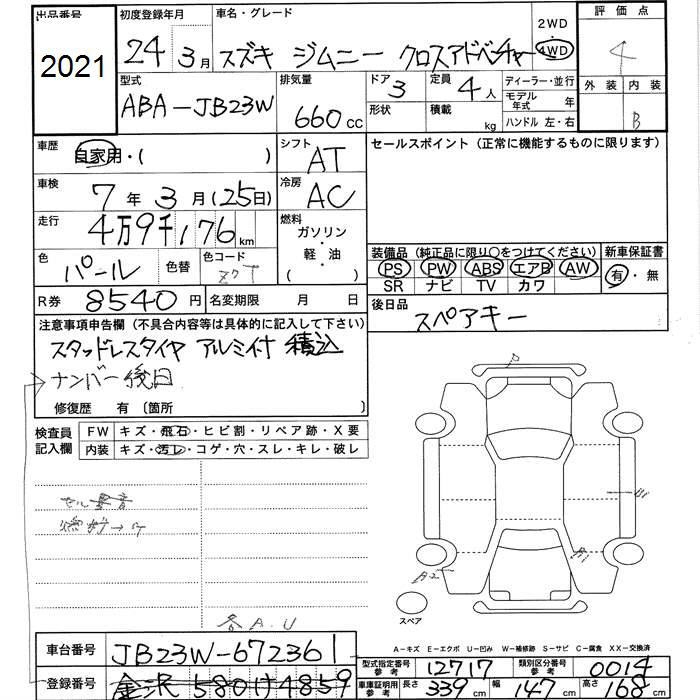 出品番号 初度登録年月 車名・グレード 2WD 評価点
2021 24年3月 スズキ ジムニー クロスアドベンチャー 4WD 4
型式 排気量 ドア 定員 ディーラー・並行 外装 内装
ABA-JB23W 660cc 3 4人 モデル年式 年 B
形状 積載 kg ハンドル 左・右
車歴 自家用・( ) シフト AT セールスポイント(正常に機能するものに限ります)
車検 7年3月(25日) 冷房 AC
走行 4万9千176km 燃料 ガソリン・軽油・( )
色 パール 色替 色コード
装備品(純正品に限り○をつけてください) 新車保証書
PS PW ABS エアB AW 有・無
SR ナビ TV カワ
R券 8540円 名変期限 月 日 後日品
スペアキー
注意事項申告欄(不具合内容等は具体的に記入して下さい)
スタッドレスタイヤ アルミ付 積込
ナンバー後日
修復歴 有〔箇所 〕
検査員記入欄 FW キズ・飛石・ヒビ割・リペア跡・X要
内装 キズ・汚レ・コゲ・穴・スレ・キレ・破レ
P
B1
A1
A2
スペア
各A.U
A-キズ E-エクボ U-凹み W-補修跡 S-サビ C-腐食 XX-交換済
車台番号 JB23W-672361 型式指定番号 参考 12717 類別区分番号 参考 0014
登録番号 金沢 580 け 4859 車庫証明用 参考 長さ 339cm 幅 147cm 高さ 168cm